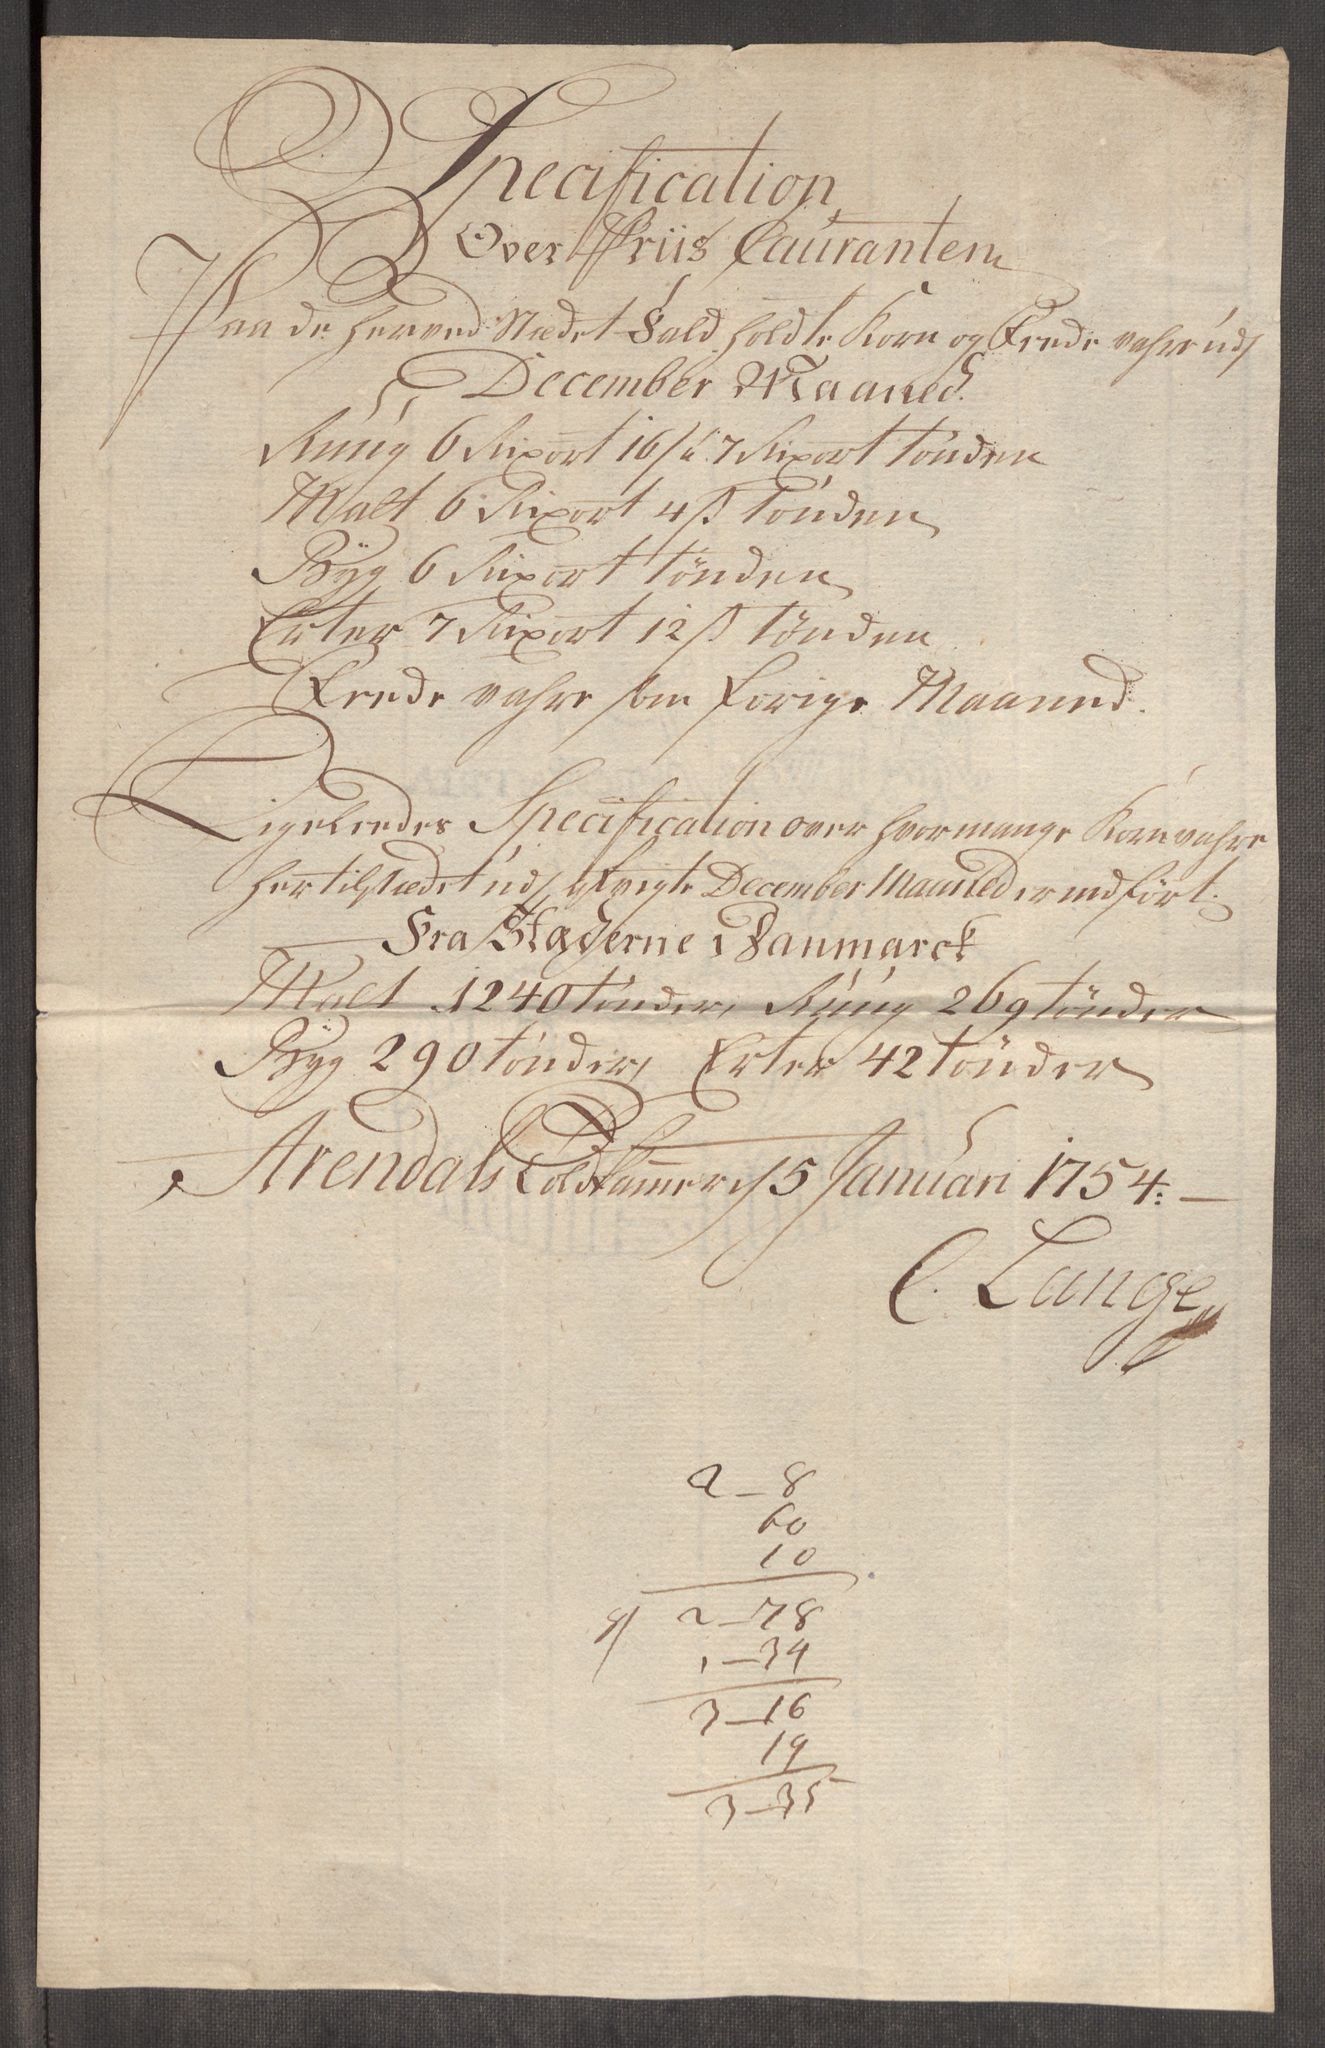 Specification
Over Priis Cauranten
Paa de herved Stædet Fald holdte Korn og Fede vahre udj
December Maaned.
Rúúg 6 Rixort 16 ß 7 Rixort tønden
Malt 6 Rixort 4 ß tønden
Byg 6 Rixort tønden
Erter 7 Rixort 12 ß tønden
Fede vahre som forige Maaned.
Ligeledes Specification over hvormange Korn vahre
hertilstædet udj December Maaned er indført.
Fra Stæderne i Danmarck
Malt 1240 tønder, Rúúg 269 tønder
Byg 290 tønder, Erter 42 tønder
Arendals Toldkammer d 5 Januari 1754.
C. Lange
2 – 8
60
10
2 – 78
1 – 34
3 – 16
19
3 – 35